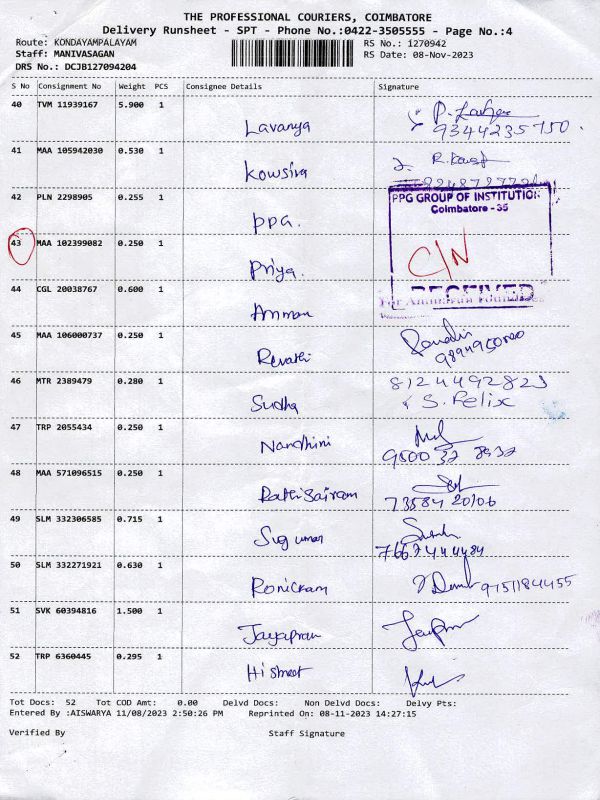 THE PROFESSIONAL COURIERS, COIMBATORE
Delivery Runsheet - SPT - Phone No.:0422-3505555 - Page No.:4
Route: KONDAYAMPALAYAM
RS No.: 1270942
Staff: MANIVASAGAN
RS Date: 08-Nov-2023
DRS No.: DCJB127094204
S No Consignment No Weight PCS Consignee Details Signature
40 TVM 11939167 5.900 1
Lavanya
9344235750.
41 MAA 105942030 0.530 1
Kowsira
42 PLN 2298905 0.255 1
PPG GROUP OF INSTITUTION
Coimbatore - 35
PPG.
43 MAA 102399082 0.250 1
C/N
Priya.
44 CGL 20038767 0.600 1
RECEIVED
Amman
45 MAA 106000737 0.250 1
Revathi
46 MTR 2389479 0.280 1
8124492823
Sudha
S. Felix
47 TRP 2055434 0.250 1
Nandhini
48 MAA 571096515 0.250 1
Rathisairam
73584 20106
49 SLM 332306585 0.715 1
Sugumar
7667444484
50 SLM 332271921 0.630 1
Ronickam
9751184455
51 SVK 60394816 1.500 1
Jayapran
52 TRP 6360445 0.295 1
Tot Docs: 52 Tot COD Amt: 0.00 Delvd Docs: Non Delvd Docs: Delvy Pts:
Entered By :AISWARYA 11/08/2023 2:50:26 PM Reprinted On: 08-11-2023 14:27:15
Verified By Staff Signature